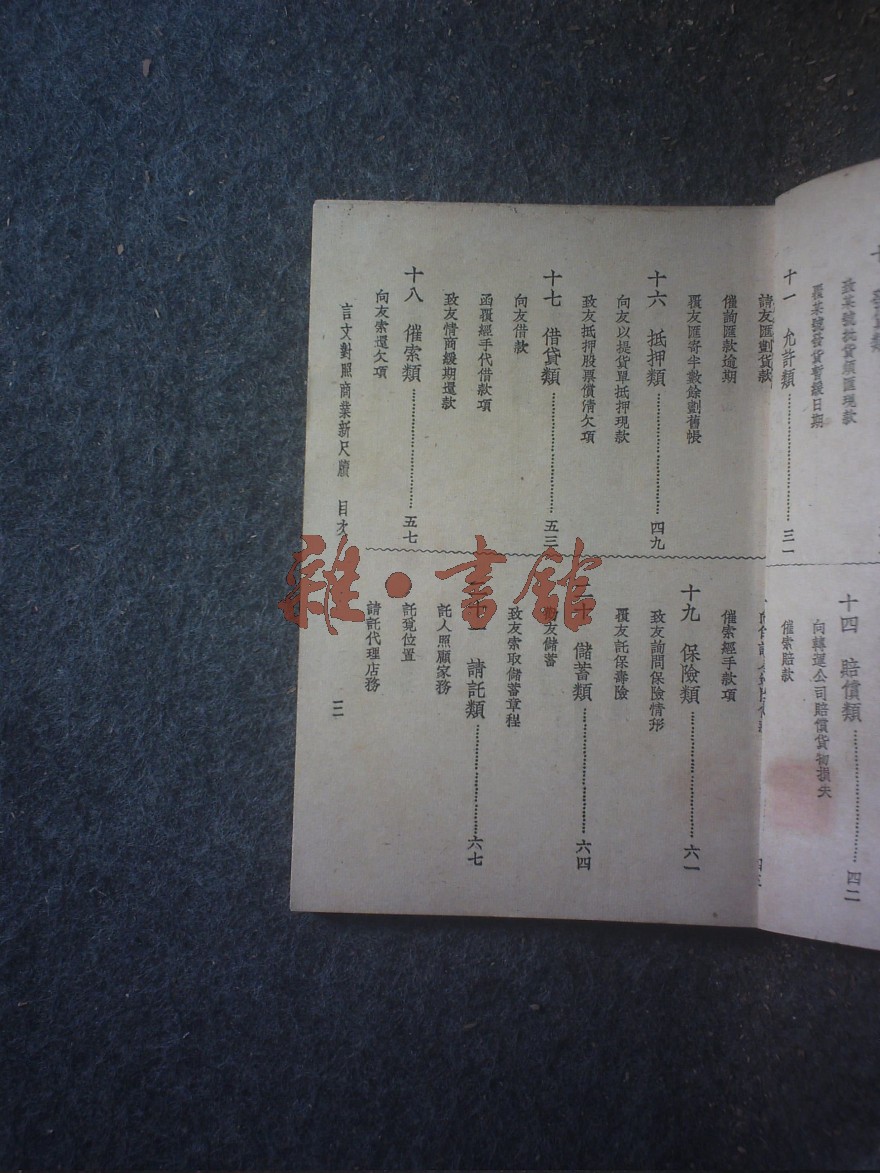 致某號批貨須匯現款
覆某號發貨暫緩日期
十一 允許類 三一
十四 賠償類 四二
向轉運公司賠償貨物損失
催索賠款
請友匯劃貨款
催詢匯款逾期
覆友匯寄半數餘劃舊帳
十六 抵押類 四九
向友以提貨單抵押現款
致友抵押股票償清欠項
十七 借貸類 五三
向友借款
函覆經手代借款項
致友情商緩期還款
十八 催索類 五七
向友索還欠項
催索經手款項
十九 保險類 六一
致友詢問保險情形
覆友託保壽險
二十 儲蓄類 六四
勸友儲蓄
致友索取儲蓄章程
請託類 六七
託人照顧家務
託覓位置
請託代理店務
言文對照商業新尺牘 目次 三
雜·書館